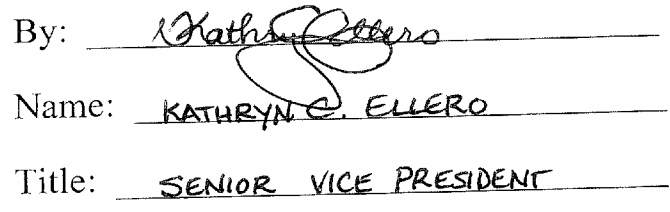 By: Kathryn Ellero
Name: KATHRYN C. ELLERO
Title: SENIOR VICE PRESIDENT